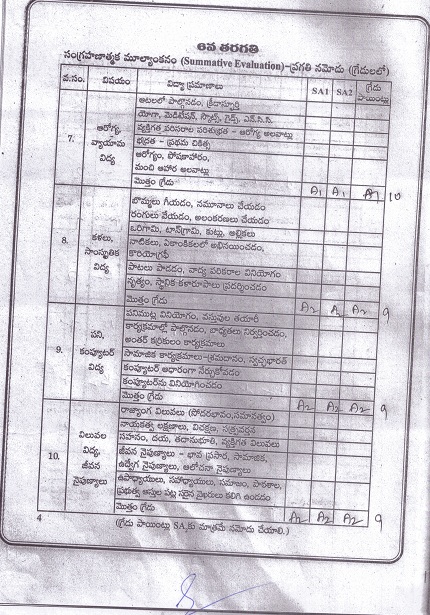 6వ తరగతి
సంగ్రహణాత్మక మూల్యాంకనం (Summative Evaluation)-ప్రగతి నమోదు (గ్రేడులలో)
వ.సం. విషయం విద్యా ప్రమాణాలు SA1 SA2 గ్రేడు పాయింట్లు
ఆటలలో పాల్గొనడం, క్రీడాస్ఫూర్తి
యోగా, మెడిటేషన్, స్కౌట్స్, గైడ్స్, ఎన్.సి.సి.
7. ఆరోగ్య, వ్యాయామ విద్య
వ్యక్తిగత పరిసరాల పరిశుభ్రత - ఆరోగ్య అలవాట్లు
భద్రత - ప్రథమ చికిత్స
ఆరోగ్యం, పోషణాహారం,
మంచి ఆహార అలవాట్లు
మొత్తం గ్రేడు A1 A1 A1 10
బొమ్మలు గీయడం, నమూనాలు చేయడం
రంగులు వేయడం, అలంకరణలు చేయడం
8. కళలు, సాంస్కృతిక విద్య
ఒరిగామి, టాన్‌గ్రామి, కుట్లు, అల్లికలు
నాటికలు, ఏకాంకికలలో అభినయించడం,
కొరియోగ్రఫీ
పాటలు పాడడం, వాద్య పరికరాల వినియోగం
నృత్యం, స్థానిక కళారూపాలు ప్రదర్శించడం
మొత్తం గ్రేడు A2 A2 A2 9
పనిముట్ల వినియోగం, వస్తువుల తయారీ
కార్యక్రమాల్లో పాల్గొనడం, బాధ్యతలు నిర్వర్తించడం,
అంతర్ కర్రికులం కార్యక్రమాలు
9. పని, కంప్యూటర్ విద్య
సామాజిక కార్యక్రమాలు-శ్రమదానం, స్వచ్ఛభారత్
కంప్యూటర్ ఆధారంగా నేర్చుకోవడం
కంప్యూటర్‌ను వినియోగించడం
మొత్తం గ్రేడు A2 A2 A2 9
రాజ్యాంగ విలువలు (సోదరభావం,సమానత్వం)
నాయకత్వ లక్షణాలు, విచక్షణ, సత్ప్రవర్తన
10. విలువల విద్య, జీవన నైపుణ్యాలు
సహనం, దయ, తదానుభూతి, వ్యక్తిగత విలువలు
జీవన నైపుణ్యాలు - భావ ప్రసార, సామాజిక,
ఉద్వేగ నైపుణ్యాలు, ఆలోచనా నైపుణ్యాలు
ఉపాధ్యాయులు, సహాధ్యాయులు, సమాజం, పాఠశాల,
ప్రభుత్వ ఆస్తుల పట్ల సరైన వైఖరులు కలిగి ఉండడం
మొత్తం గ్రేడు A2 A2 A2 9
4 (గ్రేడు పాయింట్లు SA.కు మాత్రమే నమోదు చేయాలి.)